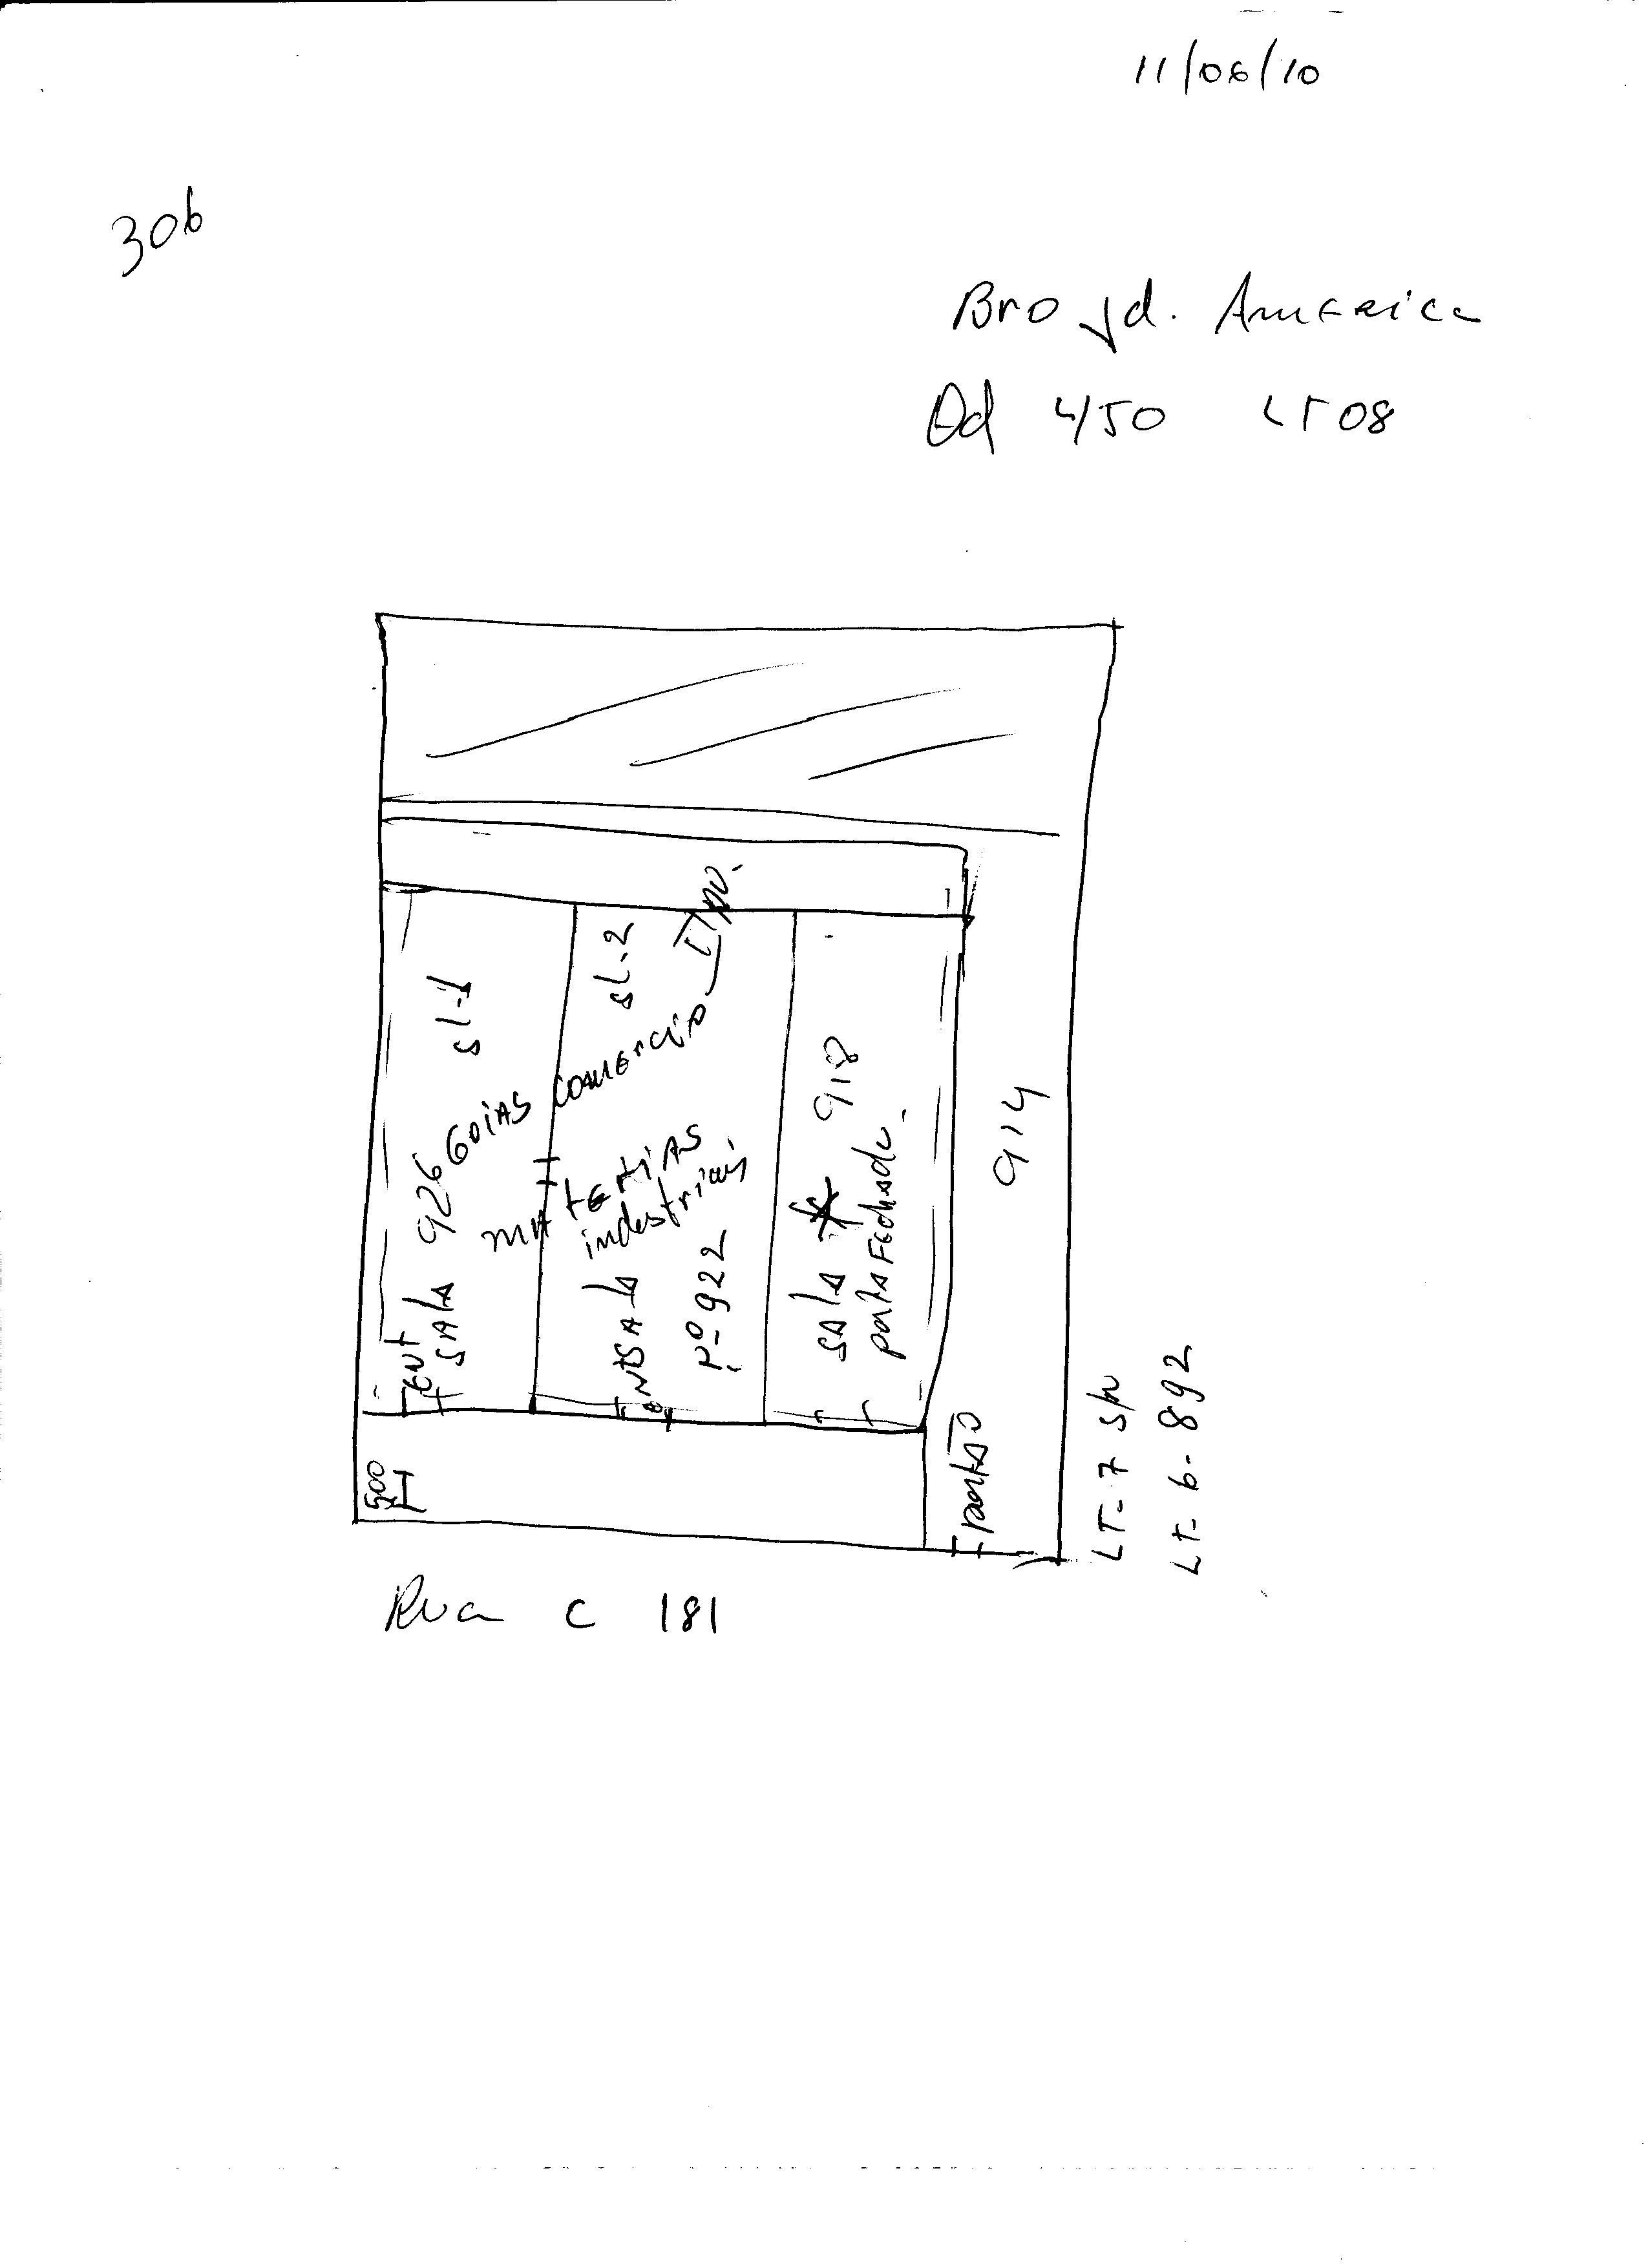 11/06/10
306
Bro Jd. America
Qd 450 LT 08
SL-1
SL-2
926
GOIAS COMERCIO
MATERIAS
industriais
ENT
SALA
SALA
Nº 922
SALA 918
porta Fechada.
914
portão
500
LT-7 S/N
LT-6-892
Rua C 181